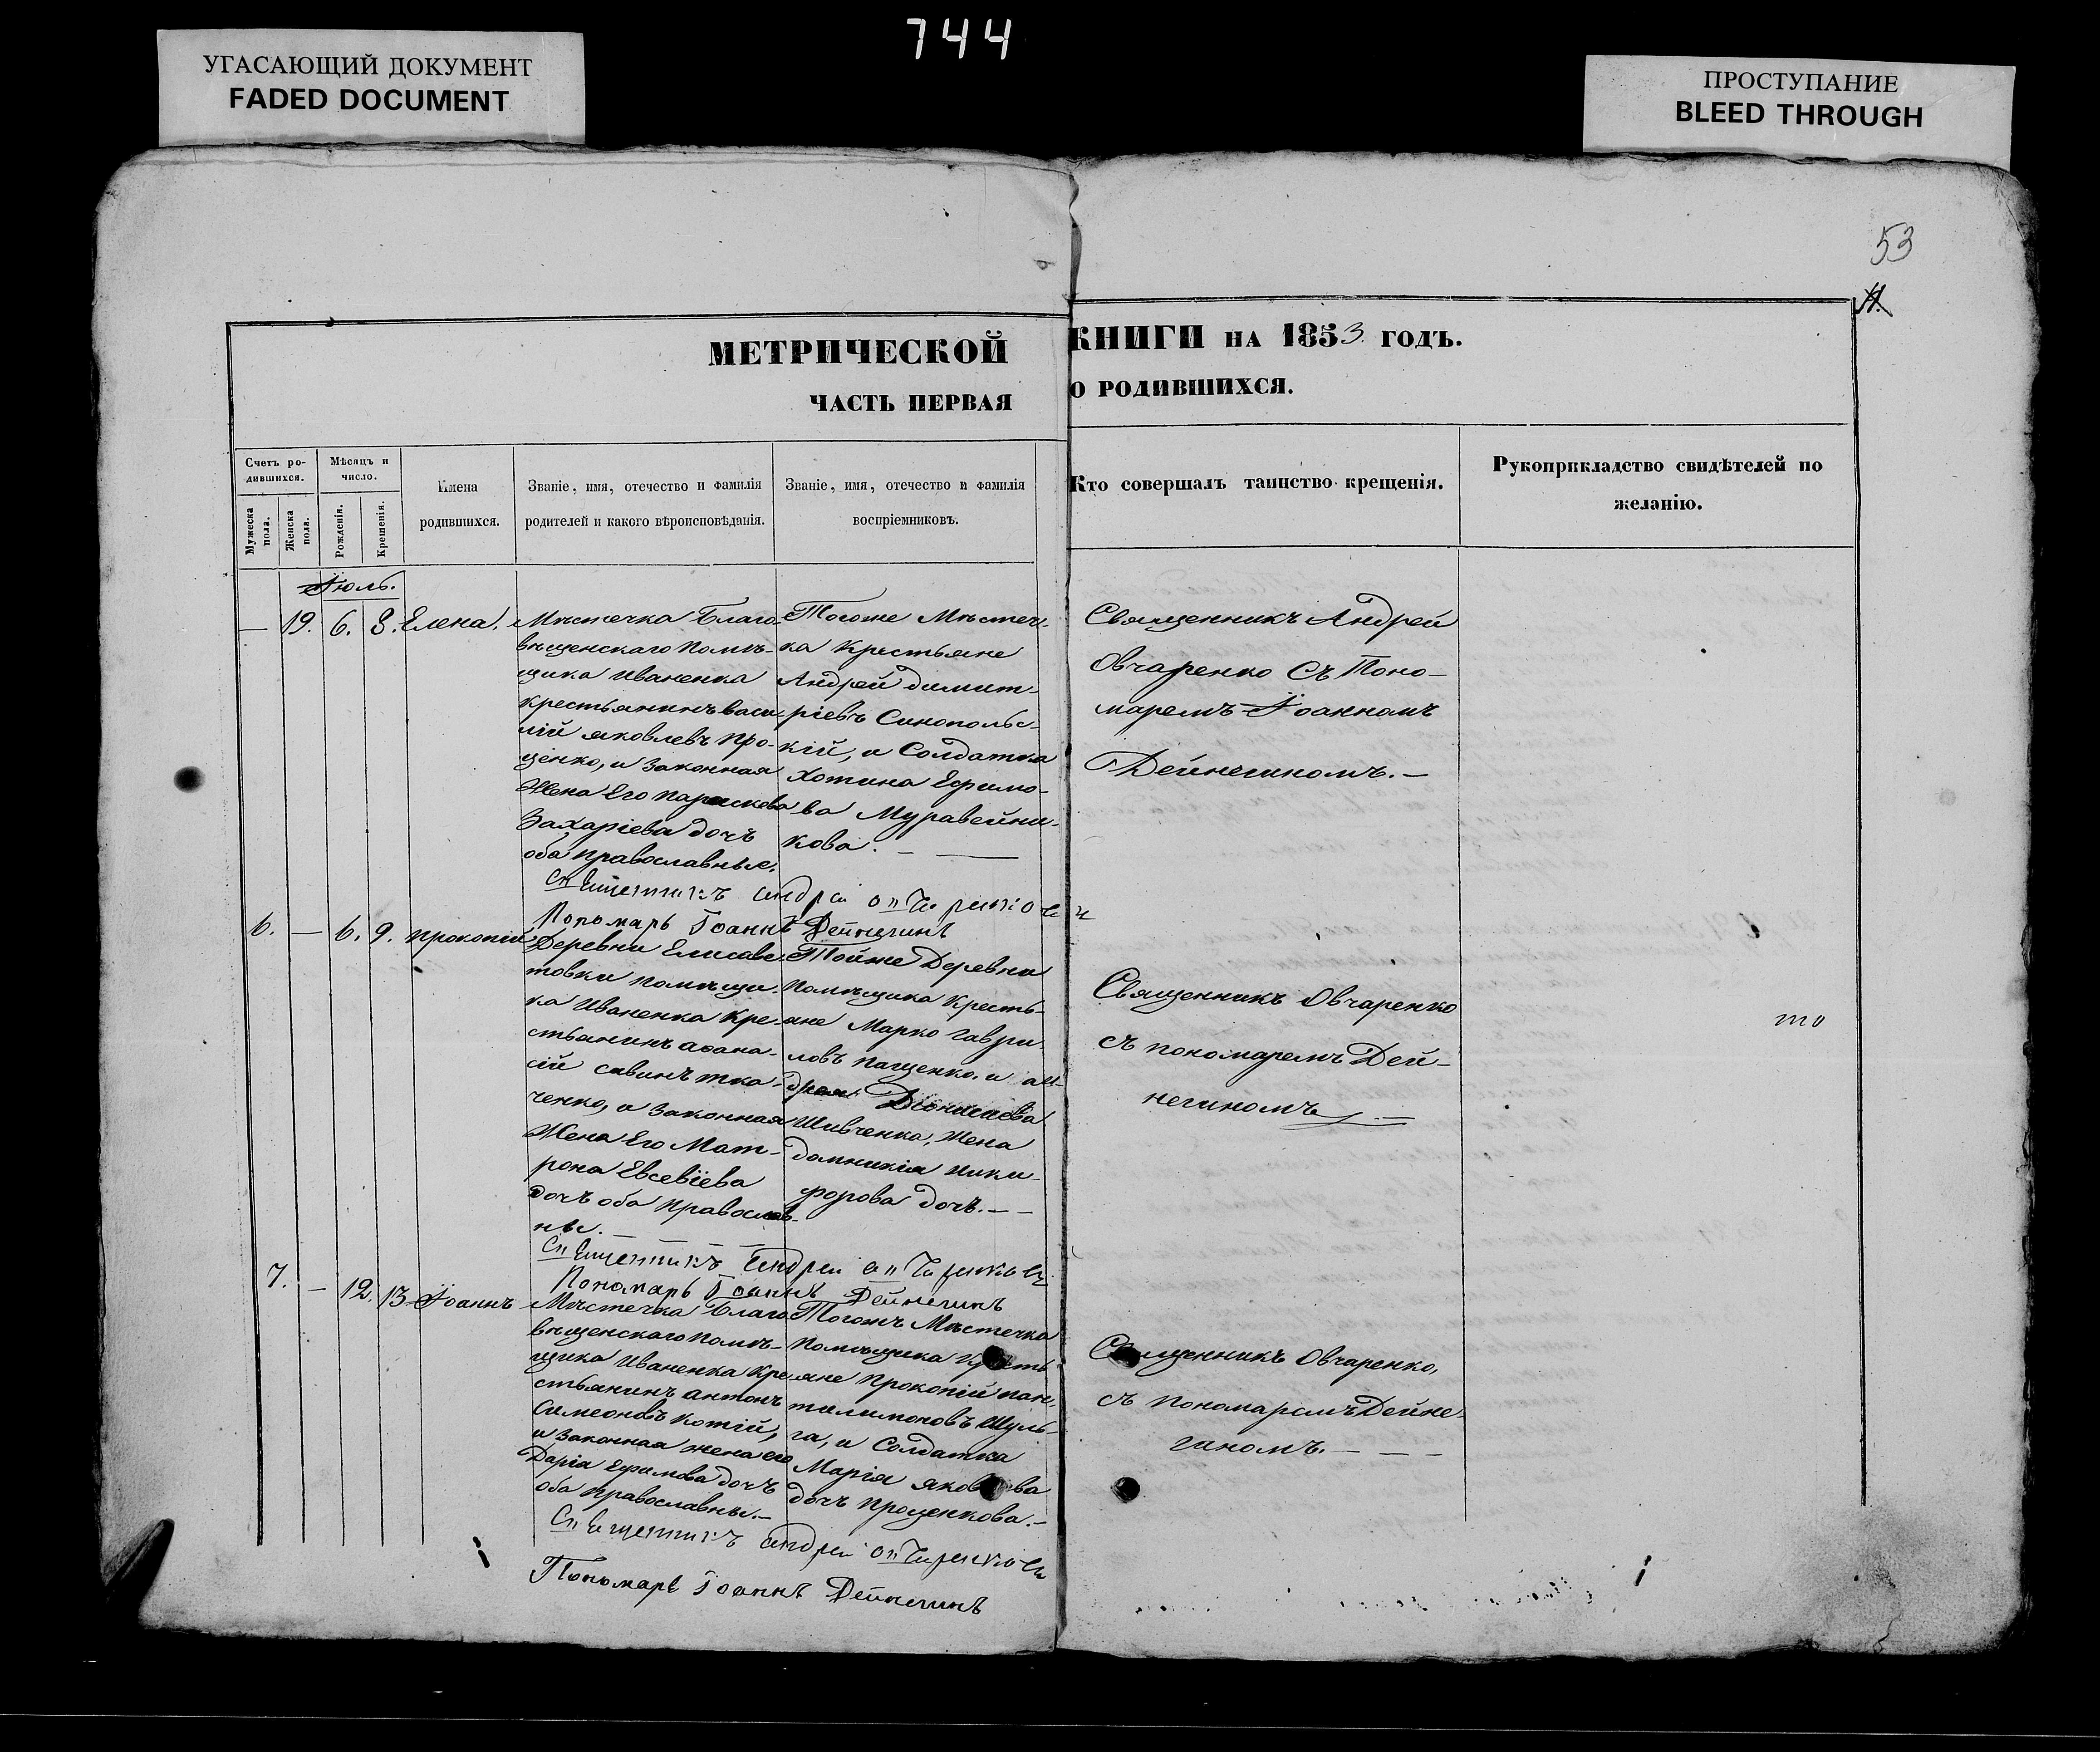 744
УГАСАЮЩИЙ ДОКУМЕНТ
FADED DOCUMENT
ПРОСТУПАНИЕ
BLEED THROUGH
53
МЕТРИЧЕСКОЙ КНИГИ НА 1853 ГОДЪ.
ЧАСТЬ ПЕРВАЯ О РОДИВШИХСЯ.
Счетъ ро-
дившихся.
Мужеска пола.
Женска пола.
Мѣсяцъ и
число.
Рожденія.
Крещенія.
Имена
родившихся.
Званіе, имя, отечество и фамилія
родителей и какого вѣроисповѣданія.
Званіе, имя, отечество и фамилія
воспріемниковъ.
Кто совершалъ таинство крещенія.
Рукоприкладство свидѣтелей по
желанію.
Іюль.
— 19. 6. 8. Елена.
Мѣстечка Благо-
вѣщенскаго помѣ-
щика Иваненка
крестьянинъ Васи-
лій Яковлевъ Про-
ценко, и законная
жена его Параскева
Захаріева дочъ
оба православные.
Тогоже Мѣстеч-
ка Крестьяне
Андрей Димит-
ріевъ Синопольс-
кій, и Солдатка
Хотина Ефимо-
ва Муравейни-
кова. —
Священникъ Андрей
Овчаренко Съ Поно-
маремъ Іоанномъ
Дейнегиномъ. —
Священникъ Андрей
Пономарь Іоаннъ Дейнегинъ
6. — 6. 9. Прокопій
Деревни Елисаве-
товки помѣщи-
ка Иваненка Кре-
стьянинъ Афана-
сій Савинъ Тка-
ченко, и законная
жена его Мат-
рона Евсевіева
дочъ оба Православ-
ны. —
Тойже Деревни
Помѣщика Кресть-
яне Марко Гаври-
ловъ Пащенко, и
Шивченка, жена
Домникія Ники-
форова дочъ. — —
Священникъ Овчаренко
съ пономаремъ Дей-
негиномъ —
то
Священникъ Андрей
Пономарь Іоаннъ Дейнегинъ
7. — 12. 13 Іоаннъ
Мѣстечка Благо
вѣщенскаго помѣ-
щика Иваненка Кре
стьянинъ Антонъ
Симеоновъ Котій,
и законная жена его
Дарія Ефимова дочъ
оба православны. —
Тогожъ Мѣстечка
Помѣщика Кресть
яне Прокопій Пан-
телимоновъ Шуль-
га, и Солдатка
Марія Яковлева
дочъ Проценкова. —
Священникъ Овчаренко,
съ Пономаремъ Дейне-
гиномъ. — —
Священникъ Андрей
Пономарь Іоаннъ Дейнегинъ